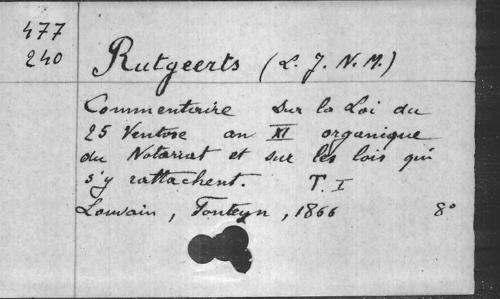 477
240
Rutgeerts (L. J. N. M.)
Commentaire sur la Loi du
25 Ventose an XI organique
du Notariat et sur les lois qui
s'y rattachent. T. I
Louvain, Fonteyn, 1866 8°